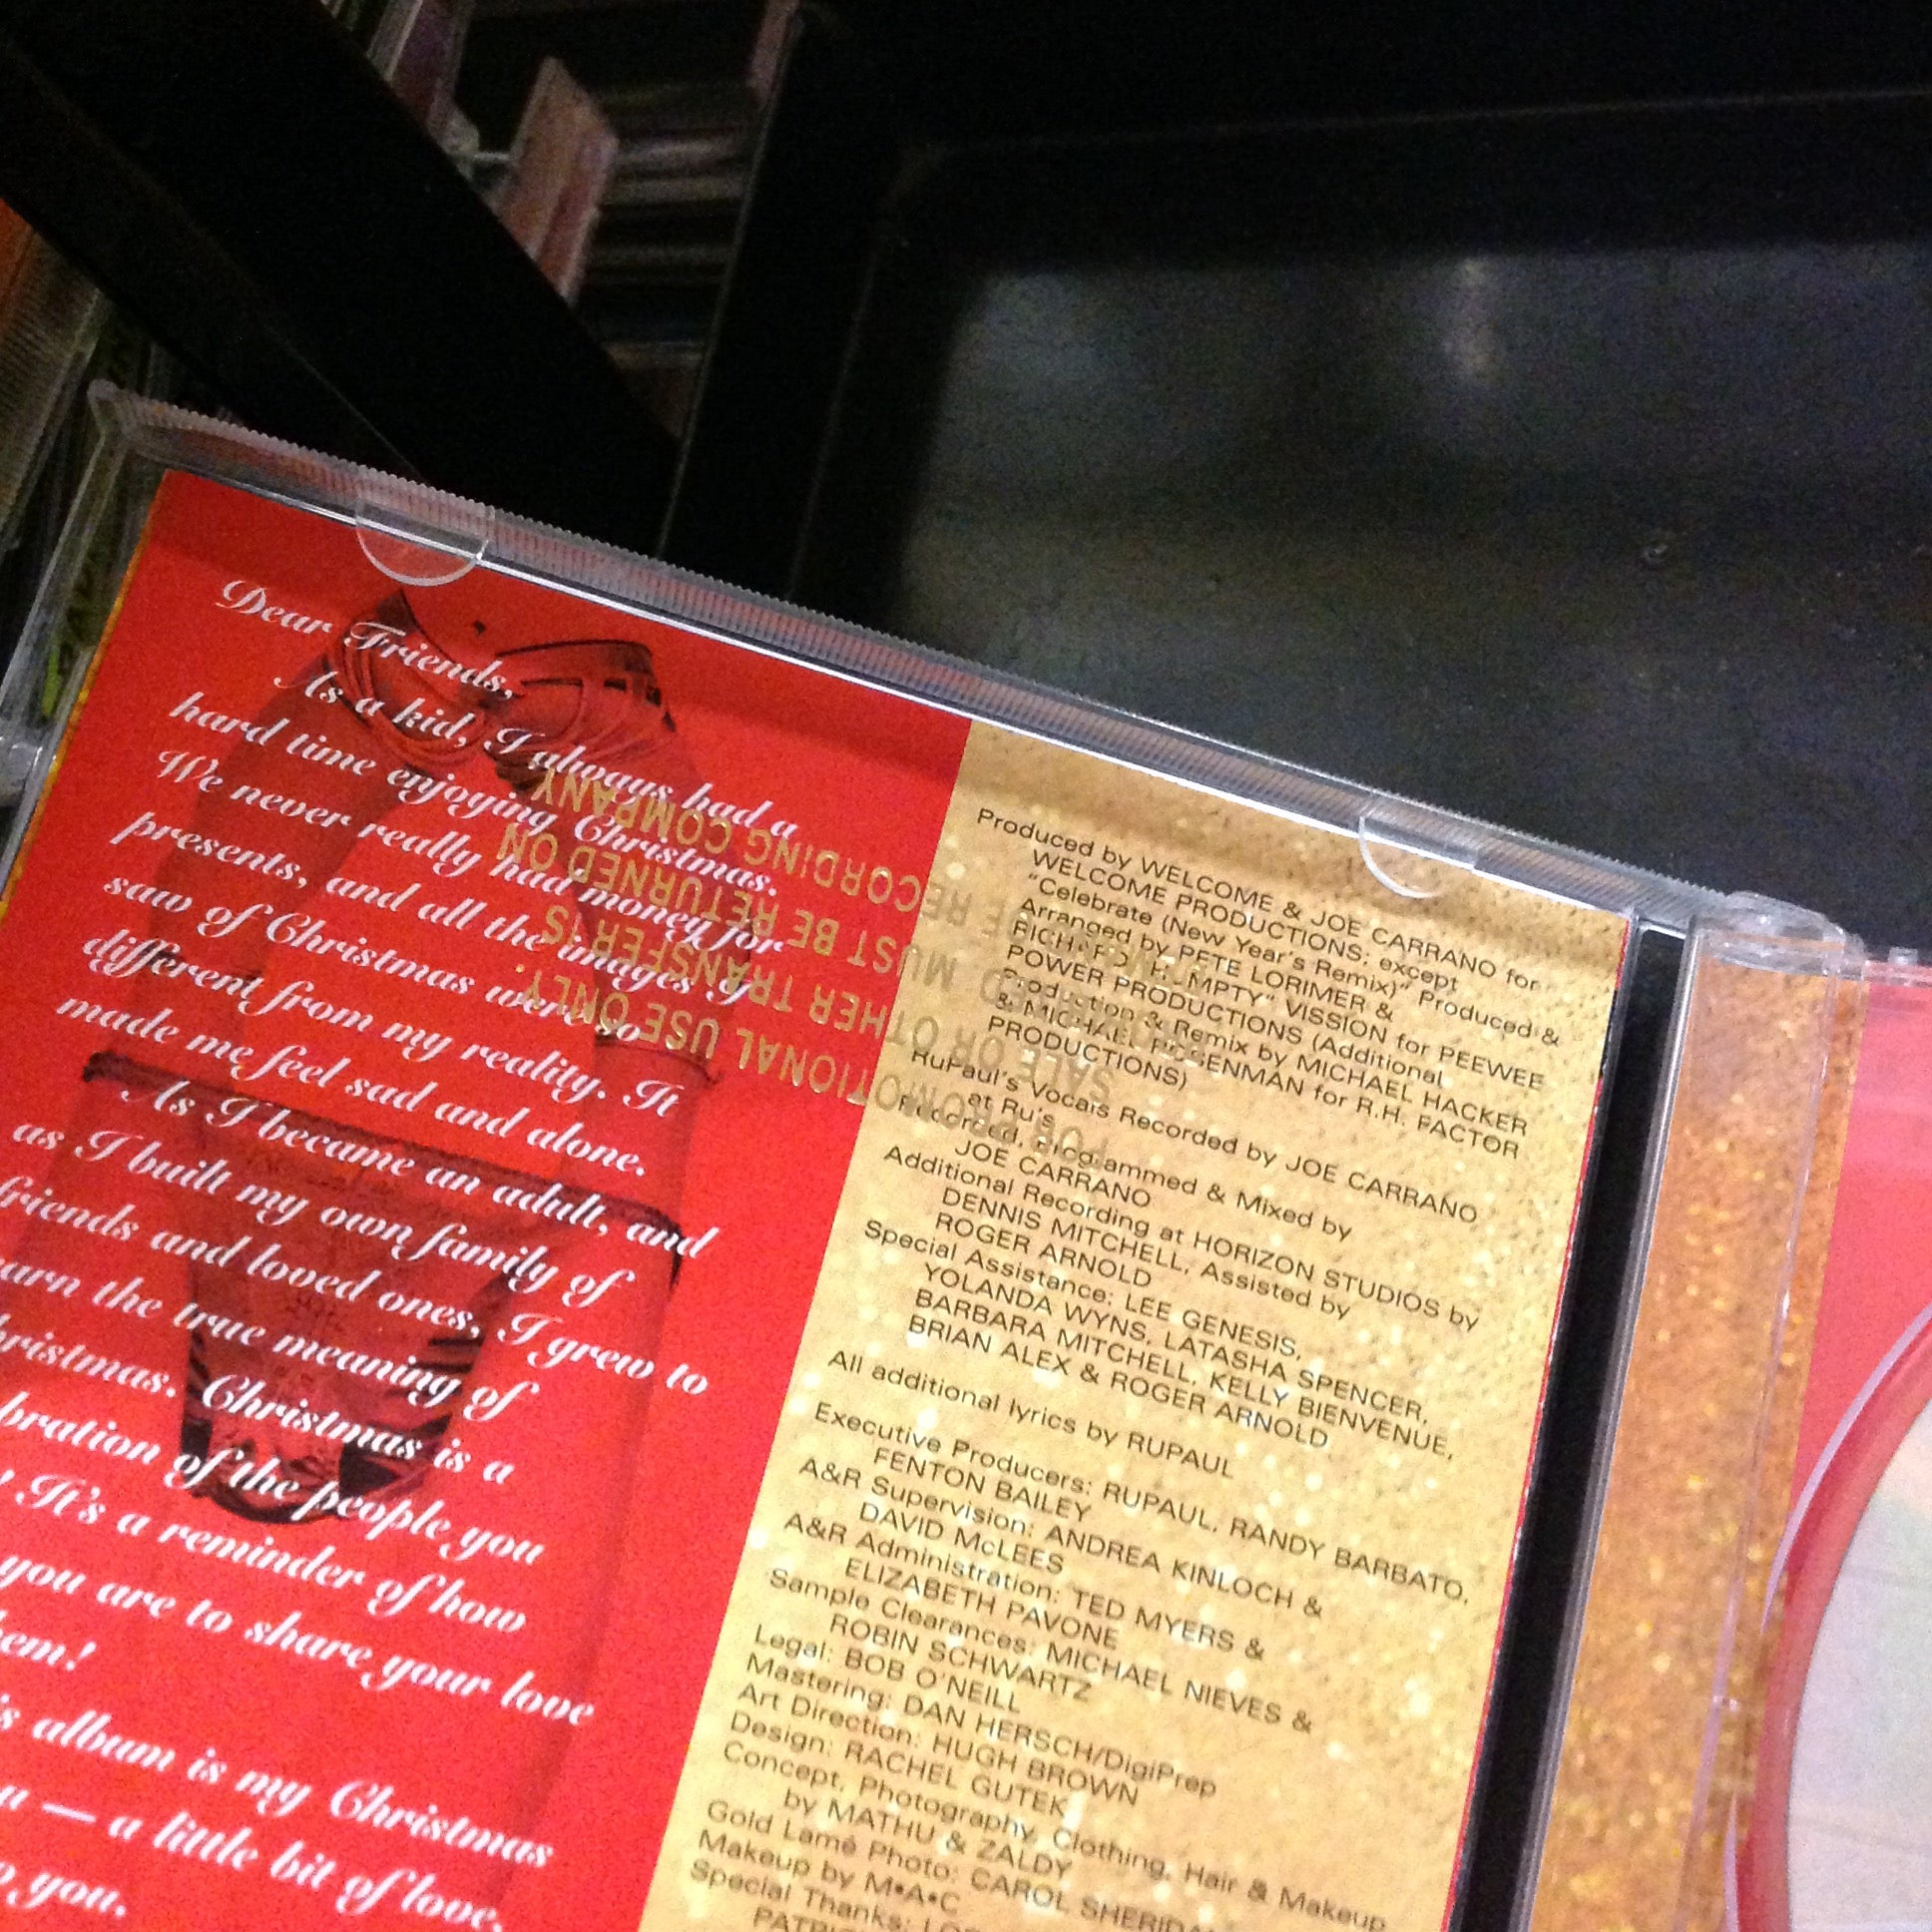 Dear Friends,
As a kid, I always had a
hard time enjoying Christmas.
We never really had money for
presents, and all the images I
saw of Christmas were so
different from my reality. It
made me feel sad and alone.
As I became an adult, and
as I built my own family of
friends and loved ones, I grew to
the true meaning of
Christmas is a
of the people you
! It's a reminder of how
you are to share your love
album is my Christmas
— a little bit of love,
you.
Produced by WELCOME & JOE CARRANO for
WELCOME PRODUCTIONS; except
"Celebrate (New Year's Remix)" Produced &
Arranged by PETE LORIMER &
"HUMPTY" VISSION for PEEWEE
POWER PRODUCTIONS (Additional
Production & Remix by MICHAEL HACKER
& MICHAEL ROSENMAN for R.H. FACTOR
PRODUCTIONS)
RuPaul's Vocals Recorded by JOE CARRANO
at Ru's
Recorded, Programmed & Mixed by
JOE CARRANO
Additional Recording at HORIZON STUDIOS by
DENNIS MITCHELL, Assisted by
ROGER ARNOLD
Special Assistance: LEE GENESIS,
YOLANDA WYNS, LATASHA SPENCER,
BARBARA MITCHELL, KELLY BIENVENUE,
BRIAN ALEX & ROGER ARNOLD
All additional lyrics by RUPAUL
Executive Producers: RUPAUL, RANDY BARBATO,
FENTON BAILEY
A&R Supervision: ANDREA KINLOCH &
DAVID McLEES
A&R Administration: TED MYERS &
ELIZABETH PAVONE
Sample Clearances: MICHAEL NIEVES &
ROBIN SCHWARTZ
Legal: BOB O'NEILL
Mastering: DAN HERSCH/DigiPrep
Art Direction: HUGH BROWN
Design: RACHEL GUTEK
Concept, Photography, Clothing, Hair & Makeup
by MATHU & ZALDY
Gold Lamé Photo: CAROL
Makeup by M•A•C
Special Thanks:
FOR PROMOTIONAL USE ONLY.
SALE OR OTHER TRANSFER IS
MUST BE RETURNED ON
RECORDING COMPANY